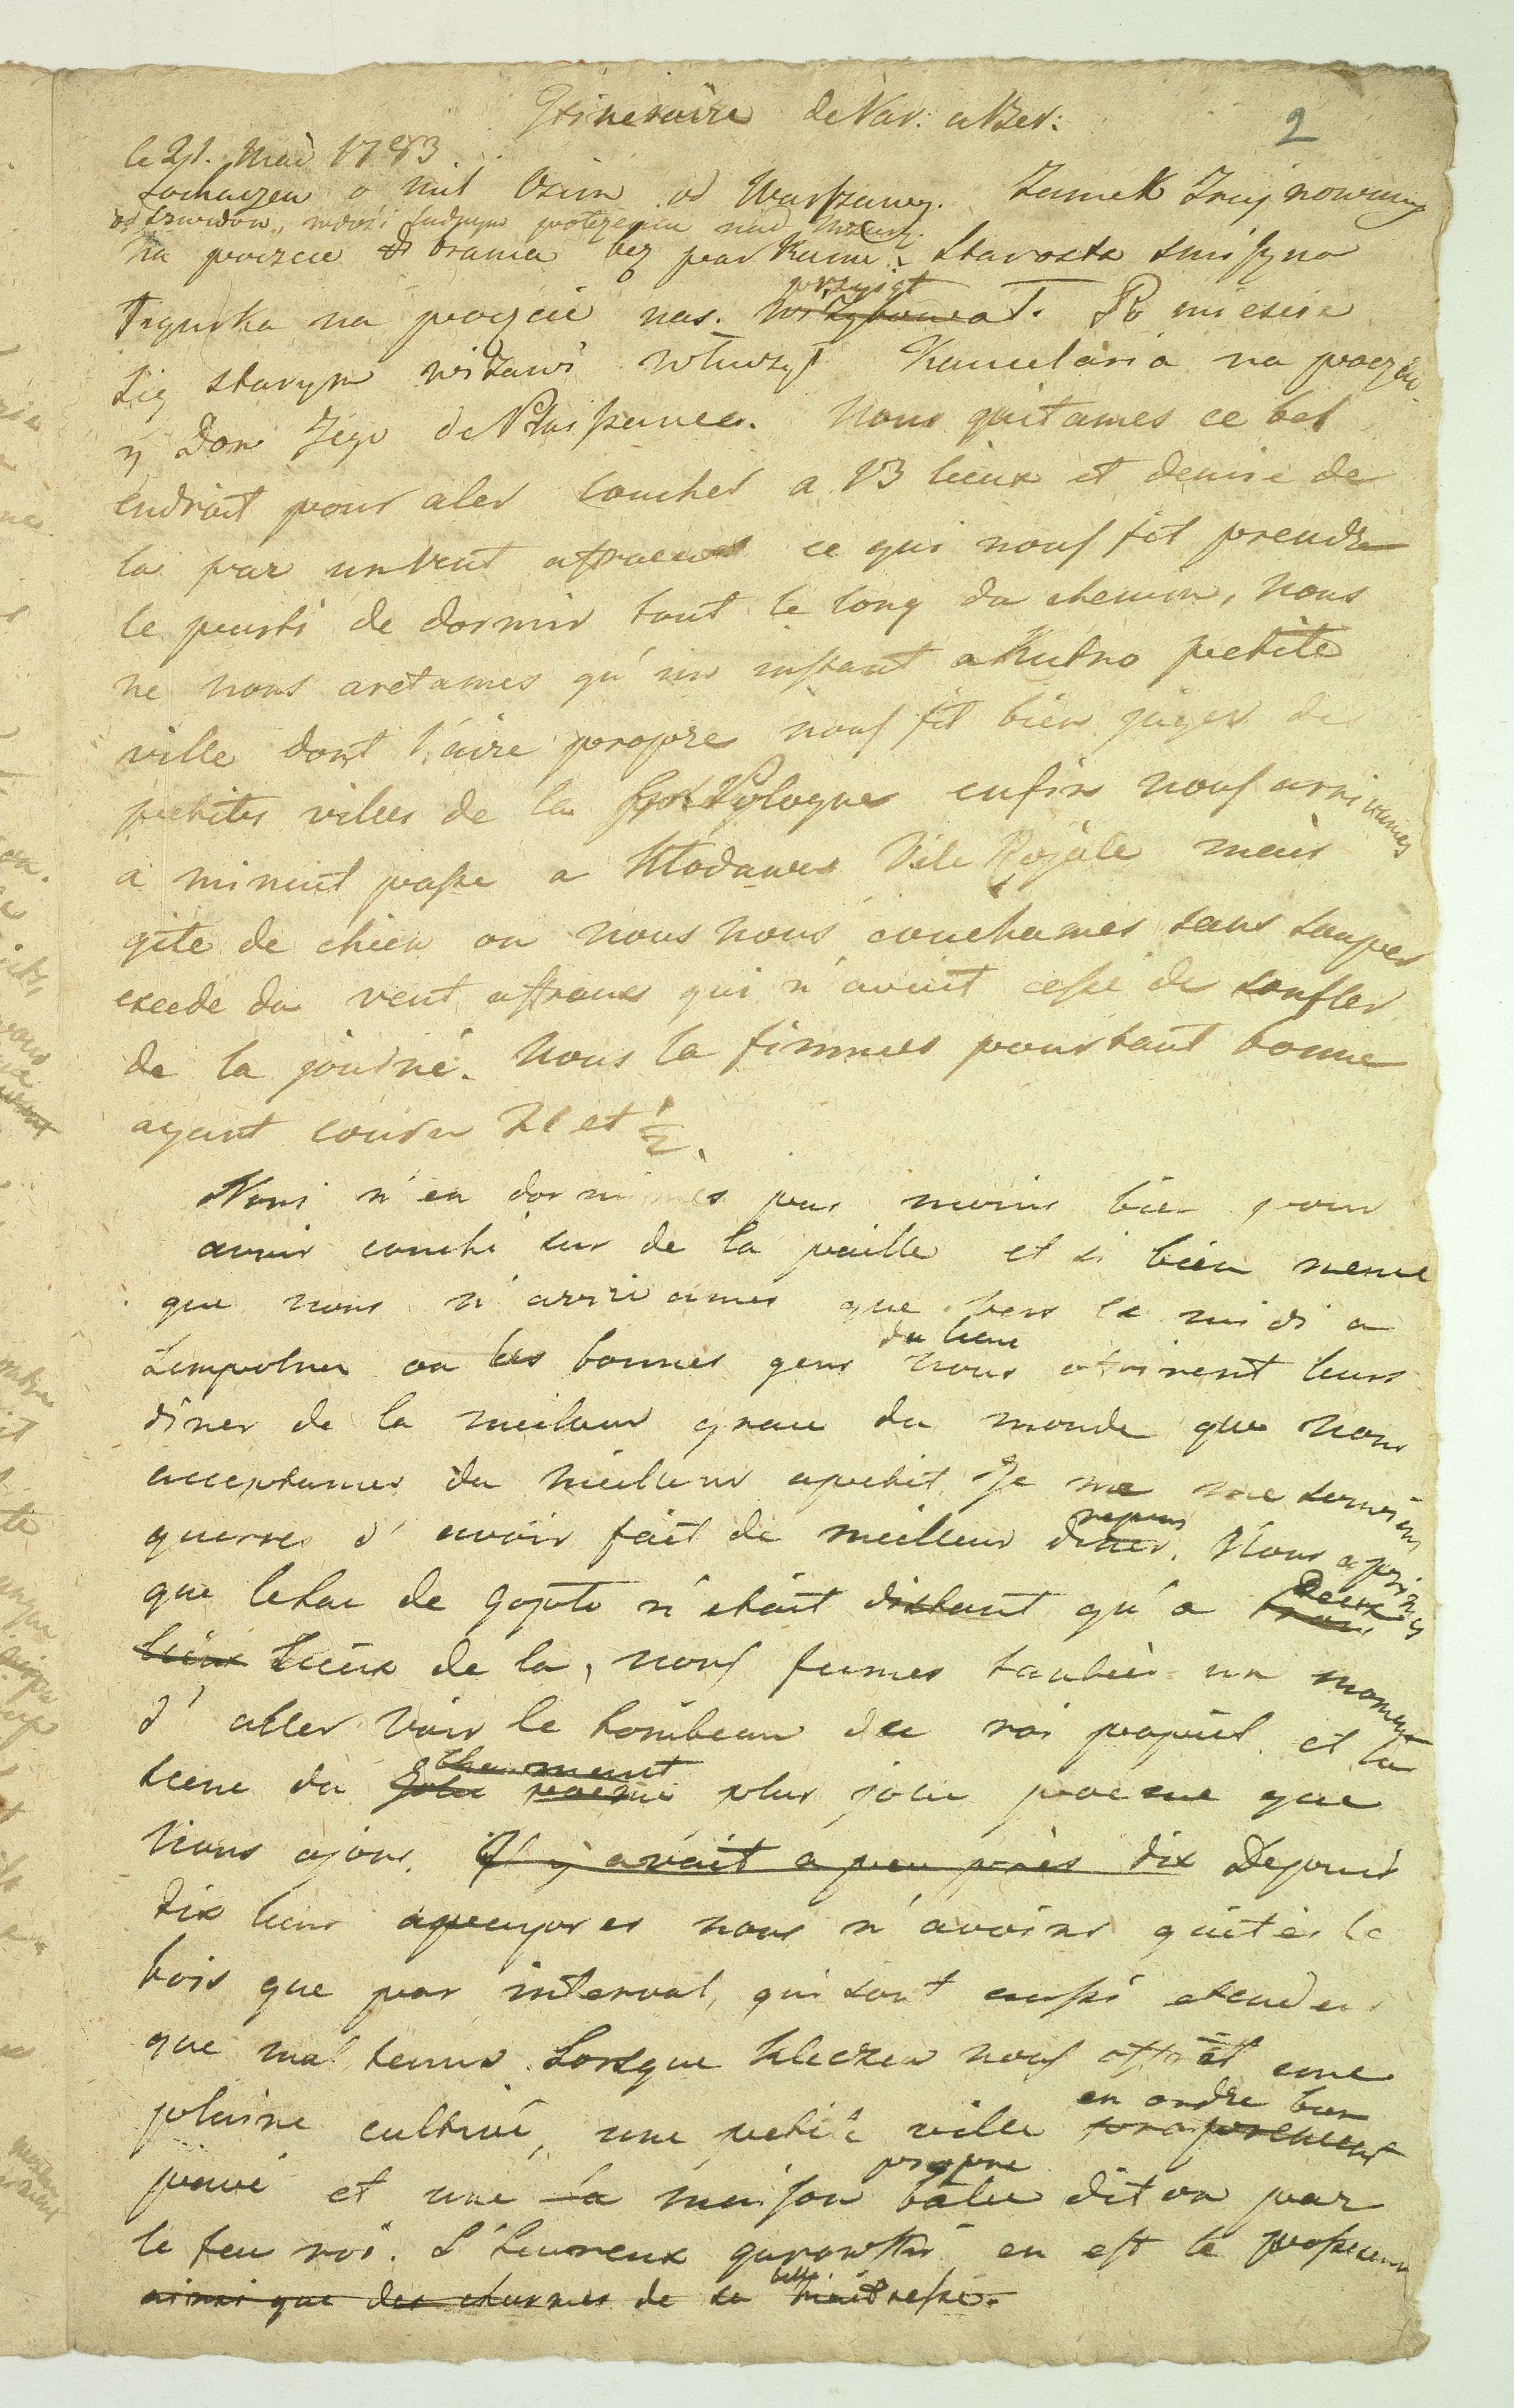 Itineraire de Var: a Ber:
2
le 21. Mai 1783.
Sochaczew o mil Osim od Warszawy. Zamek Zrujnowany
na poczcie brama bez parkanu. Starosta
na poczcie nas. przyjął Po miescie
się starym Kancelaria na poczcie
y Dom Jego de Plaisance. Nous quitames ce bel
endroit pour aler coucher a 13 lieux et demie de
la par un vent afraeux ce qui nous fit prendre
le parti de dormir tout le long du chemin, nous
ne nous aretames qu'un instant a Kutno petite
ville dont l'aire propre nous fit bien juger des
petites villes de la Pologne enfin nous arrivames
a minuit passe a Klodawa Vile Royale mais
gite de chien ou nous nous couchames sans souper
excede du vent affraeux qui n'avait cessé de soufler
de la journé. Nous la finimes pourtant bonne
ayant couru 21 et 1/2.
Nous n'en dormimes pas moins bien pour
avoir couché sur de la paille et si bien meme
que nous n'arrivames que vers le midi a
Sempolna ou les bonnes gens du lieu nous ofrirent leurs
diner de la meileur grace du monde que nous
acceptames du meilleur apetit. Je me me souviens
guerres d'avoir fait de meilleur diner repas. Nous aprimes
que le lac de Goplo n'etait distant qu'a trois deux
lieux lieux de la, nous fumes tantés un moment
d'aller voir le tombeau du roi popiel et la
scene du charmant poeme plus jolie poeme que
nous ajons. Il y avait a peu près dix Depuis
dix lieus apeupres nous n'avoins quités le
bois que par interval, qui sont aussi etendus
que mal tenus. Lorsque Kleczew nous offrit une
plaine cultivé, une petite ville en ordre bien
pavé et une la maison propre batie dit on par
le feu roi. L'heureux gurowski en est le possesseur
ainsi que des charmes de sa belle maitresse.